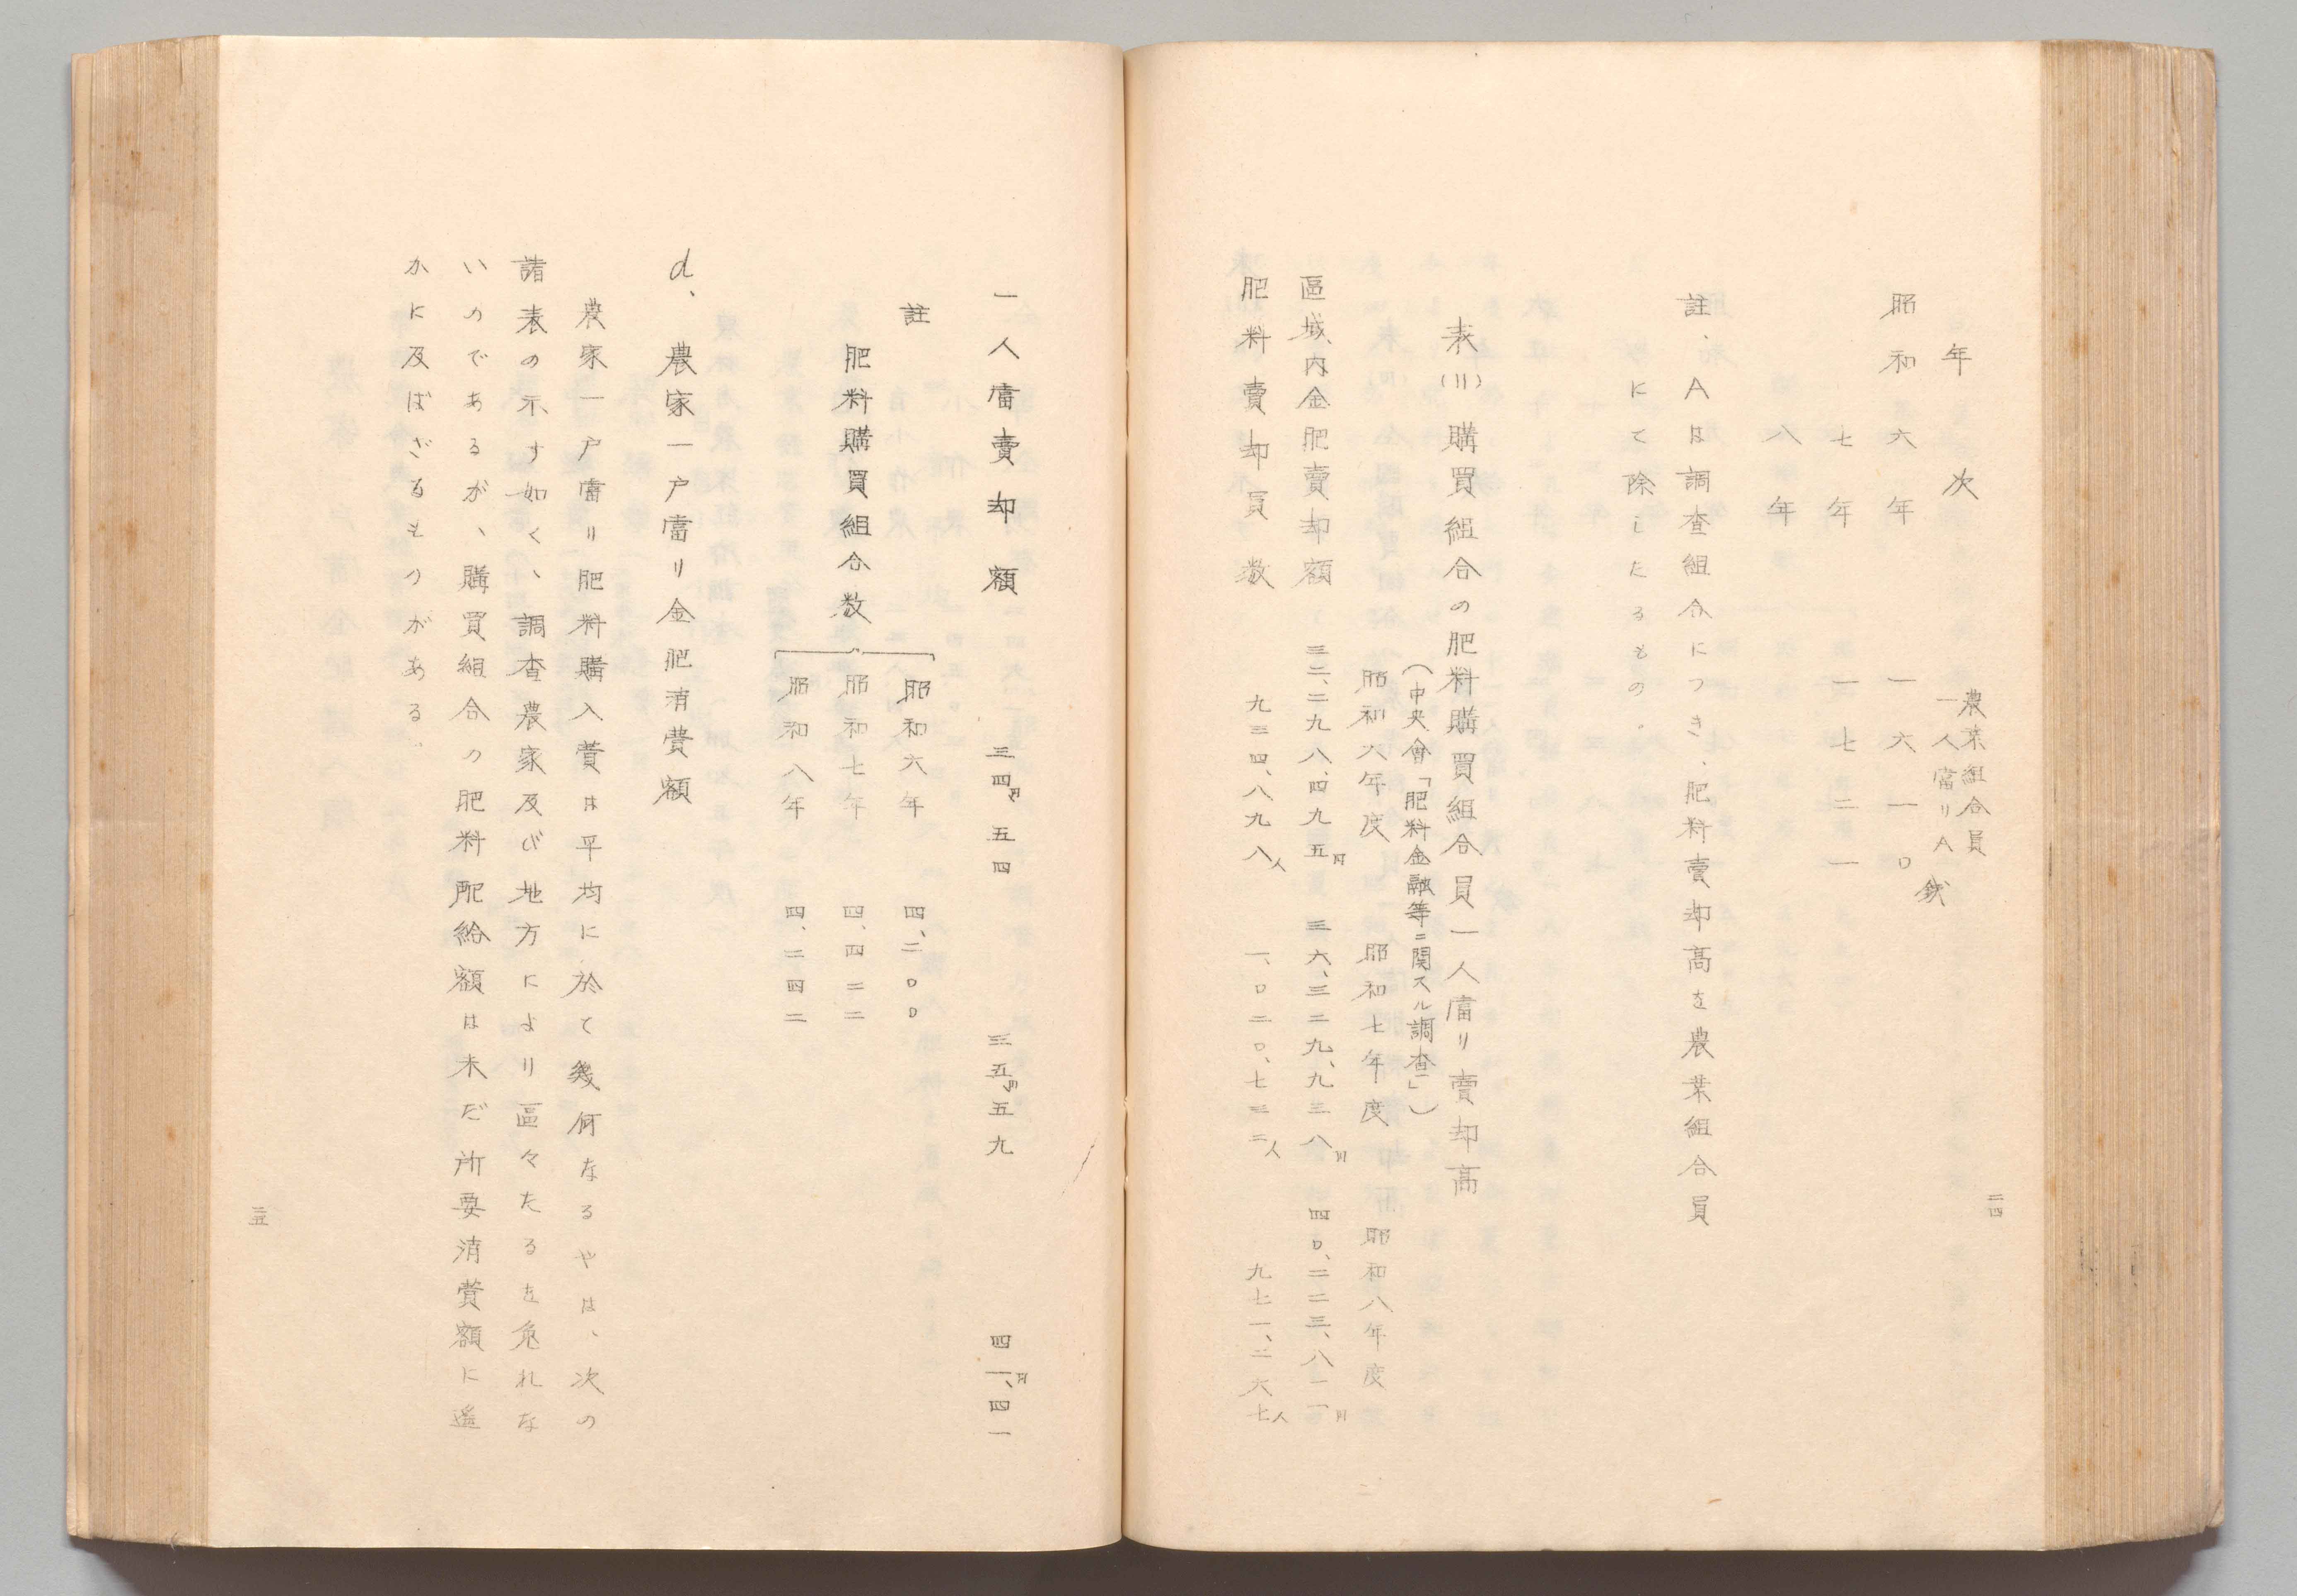 二四
年次　農業組合員一人當リA
昭和六年　一六一〇銭
七年　一七二一
八年
註、Aは調査組合につき、肥料賣却高を農業組合員
にて除したるもの。
表(11)購買組合の肥料購買組合員一人當リ賣却高
(中央會「肥料金融等ニ関スル調査」)
昭和六年度　昭和七年度　昭和八年度
區域内金肥賣却額　三二、二九八、四九五円　三六、三二九、九三八円　四〇、二二三、八一一円
肥料賣却員数　九三四、八九八人　一、〇二〇、七三二人　九七一、二六七人
一人當賣却額　三四円五四　三五円五九　四一円、四一
註
昭和六年　四、二〇〇
肥料購買組合数　昭和七年　四、四二二
昭和八年　四、二四二
d、農家一戸當リ金肥消費額
農家一戸當リ肥料購入費は平均に於て幾何なるやは、次の
諸表の示す如く、調査農家及び地方によリ區々たるを免れな
いのであるが、購買組合の肥料配給額は未だ所要消費額に遥
かに及ばざるものがある。
二五